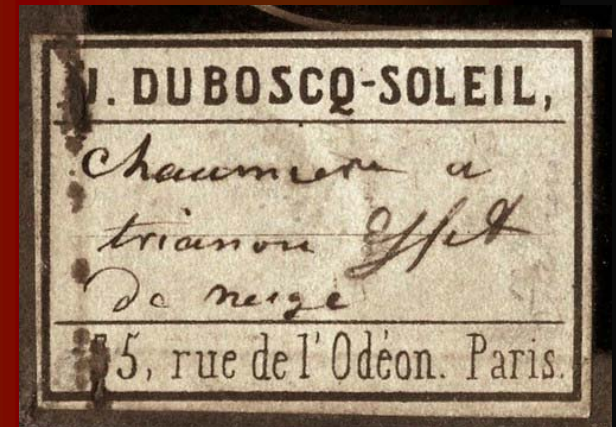 J. DUBOSCQ-SOLEIL,
Chaumiere a
trianon Effet
de neige
35, rue de l'Odéon. Paris.